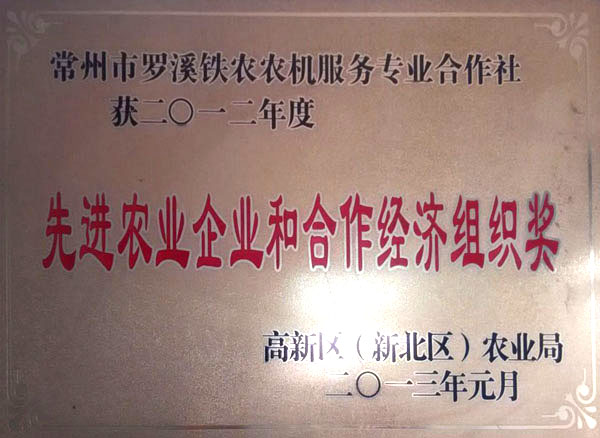 常州市罗溪铁农农机服务专业合作社
获二〇一二年度
先进农业企业和合作经济组织奖
高新区（新北区）农业局
二〇一三年元月